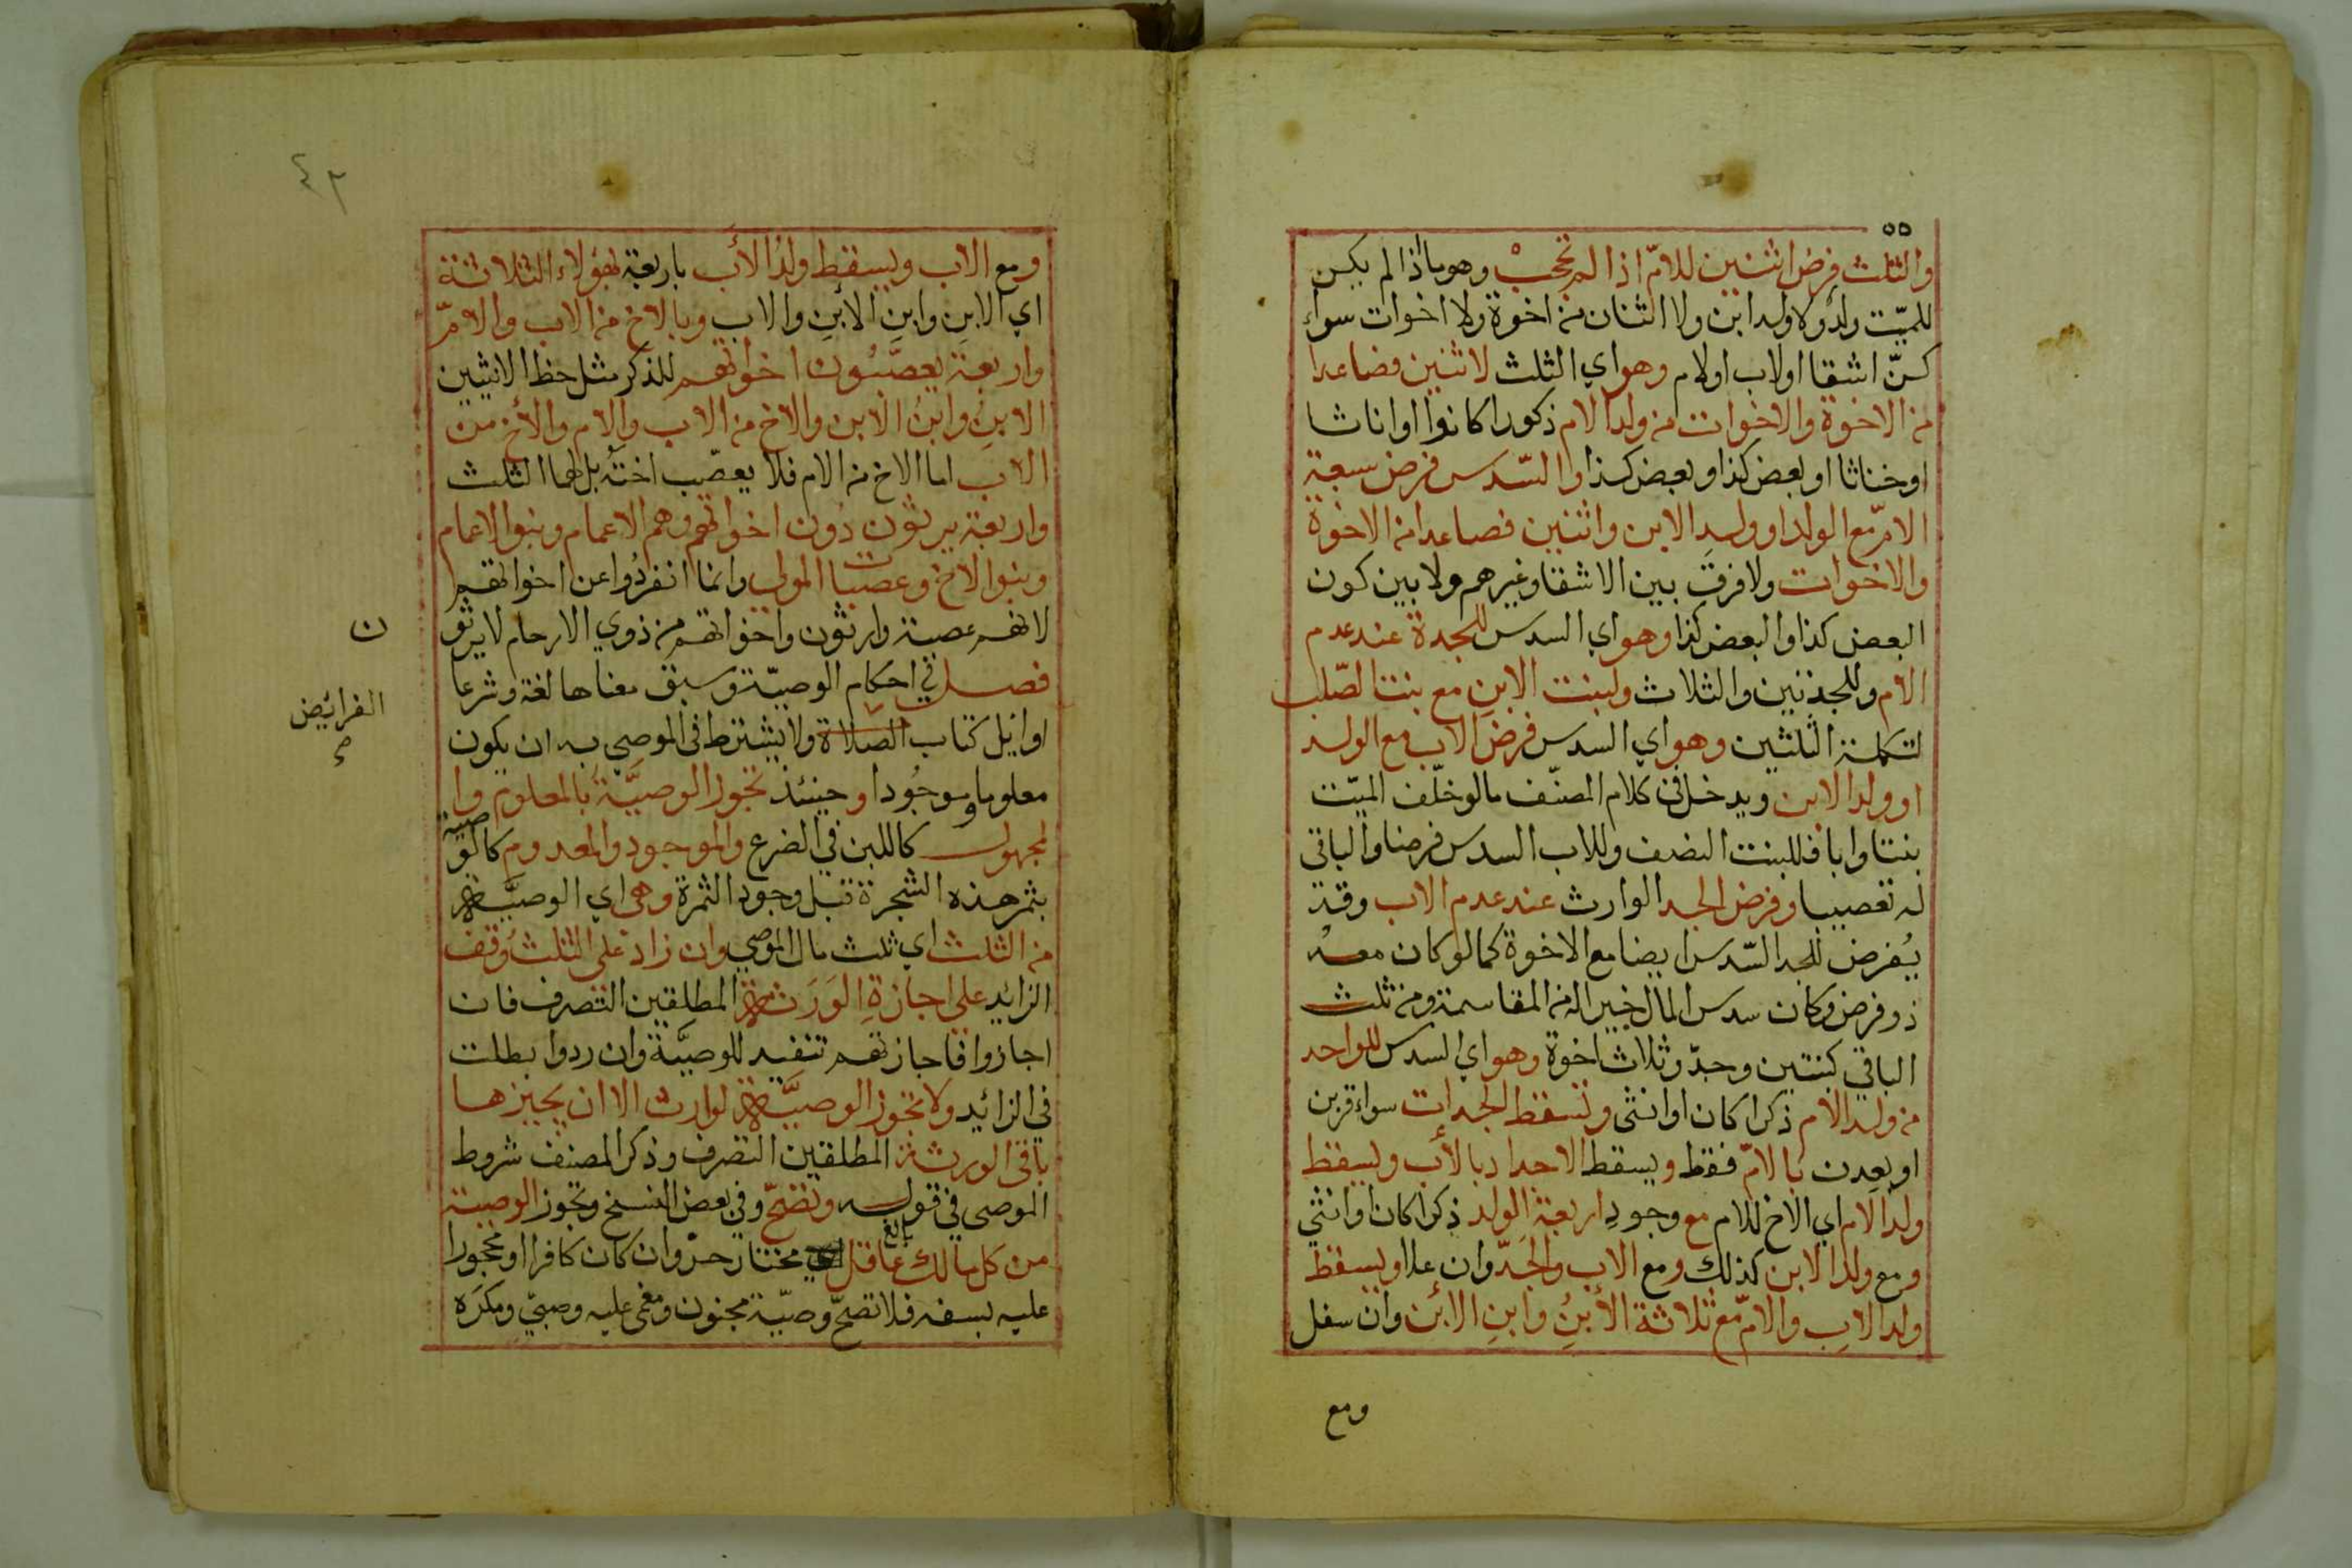 والثلث فرض اثنين للامّ اذا لم تحجبْ وهو ما اذا لم يكن
للميّت ولدٌ ولا ولد ابن ولا اثنان من اخوة ولا اخوات سواء
كنّ اشقا او لاب او لام وهو اي الثلث لاثنين فصاعدا
من الاخوة والاخوات من ولد الام ذكورا كانوا او اناثا
او خناثا او بعض كذا وبعض كذا والسّدس فرض سبعة
الامّ مع الولد او ولدِ الابن واثنين فصاعدا من الاخوة
والاخوات ولا فرق بين الاشقا وغيرهم ولا بين كون
البعض كذا والبعض كذا وهو اي السدس للجدة عند عدم
الام وللجدتين والثلاث ولبنت الابنِ مع بنت الصّلب
لتكملة الثلثين وهو اي السدس فرض الاب مع الولد
او ولد الابن ويدخل في كلام المصنّف ما لو خلّف الميّت
بنتا وابا فللبنت النصف وللاب السدس فرضا والباقي
له تعصيبا وفرض الجد الوارث عند عدم الاب وقد
يُفرض للجد السّدس ايضا مع الاخوة كما لو كان معه
ذو فرض وكان سدس المال خيرا له من المقاسمة ومن ثلث
الباقي كبنتين وجدّ وثلاث اخوة وهو اي السدس للواحد
من ولد الام ذكرا كان او انثى وتسقط الجدات سواء قربن
او بعدن بالامّ فقط ويسقط الاجداد بالأب ويسقط
ولد الام اي الاخ للام مع وجودِ اربعة الولد ذكرا كان او انثى
ومع ولد الابن كذلك ومع الاب والجَدّ وان علا ويسقط
ولد الابِ والامّ مع ثلاثة الأبنِ وابنِ الابن وان سفل
ومع
٤٣
ومع الاب ويسقط ولدُ الأب باربعة بهؤلاء الثلاثة
اي الابنِ وابنِ الأبنِ والاب وبالاخ من الاب والامّ
واربعة يعصّبُون اخواتهم للذكر مثل حظ الانثيين
الابنِ وابنُ الابن والاخ من الاب والام والأخ من
الاب اما الاخ من الام فلا يعصّب اختَه بل لهما الثلث
واربعة يرثون دُون اخواتهم وهم الاعمام وبنوا الاعمام
وبنوا الاخ وعصبات المولى وانما انفردُوا عن اخواتهم
لانهم عصبة وارثون واخواتهم من ذوي الارحام لا يرثو
ن
فصل في احكام الوصيّة وسبق معناها لغة وشرعا
اوائل كتاب الصلاة ولا يشترط في الموصى به ان يكون
الفرائض
صح
معلوما وموجُودا وحينئذ تجوز الوصيَّة بالمعلوم وا
لمجهول كاللبن في الضرع والموجود والمعدوم كالوصية
بثمر هذه الشجرة قبل وجود الثمرة وهي اي الوصيَّة
من الثلث اي ثلث مال الموصي وان زاد على الثلث وُقف
الزائد على اجازةِ الوَرَثة المطلقين التصرف فان
اجازوا فاجازتهم تنفيذ للوصيَّة وان ردوا بطلت
في الزائد ولا تجوز الوصيَّة لوارث الا ان يجيزها
باقي الورثة المطلقين التصرف وذكر المصنف شروط
الموصى في قوله وتصحّ وفي بعض النسخ وتجوز الوصية
من كل مالك بالغ عاقل مختار حرّ وان كان كافرا او محجورا
عليه بسفه فلا تصحّ وصيّة مجنون ومغمى عليه وصبيّ ومكرَه